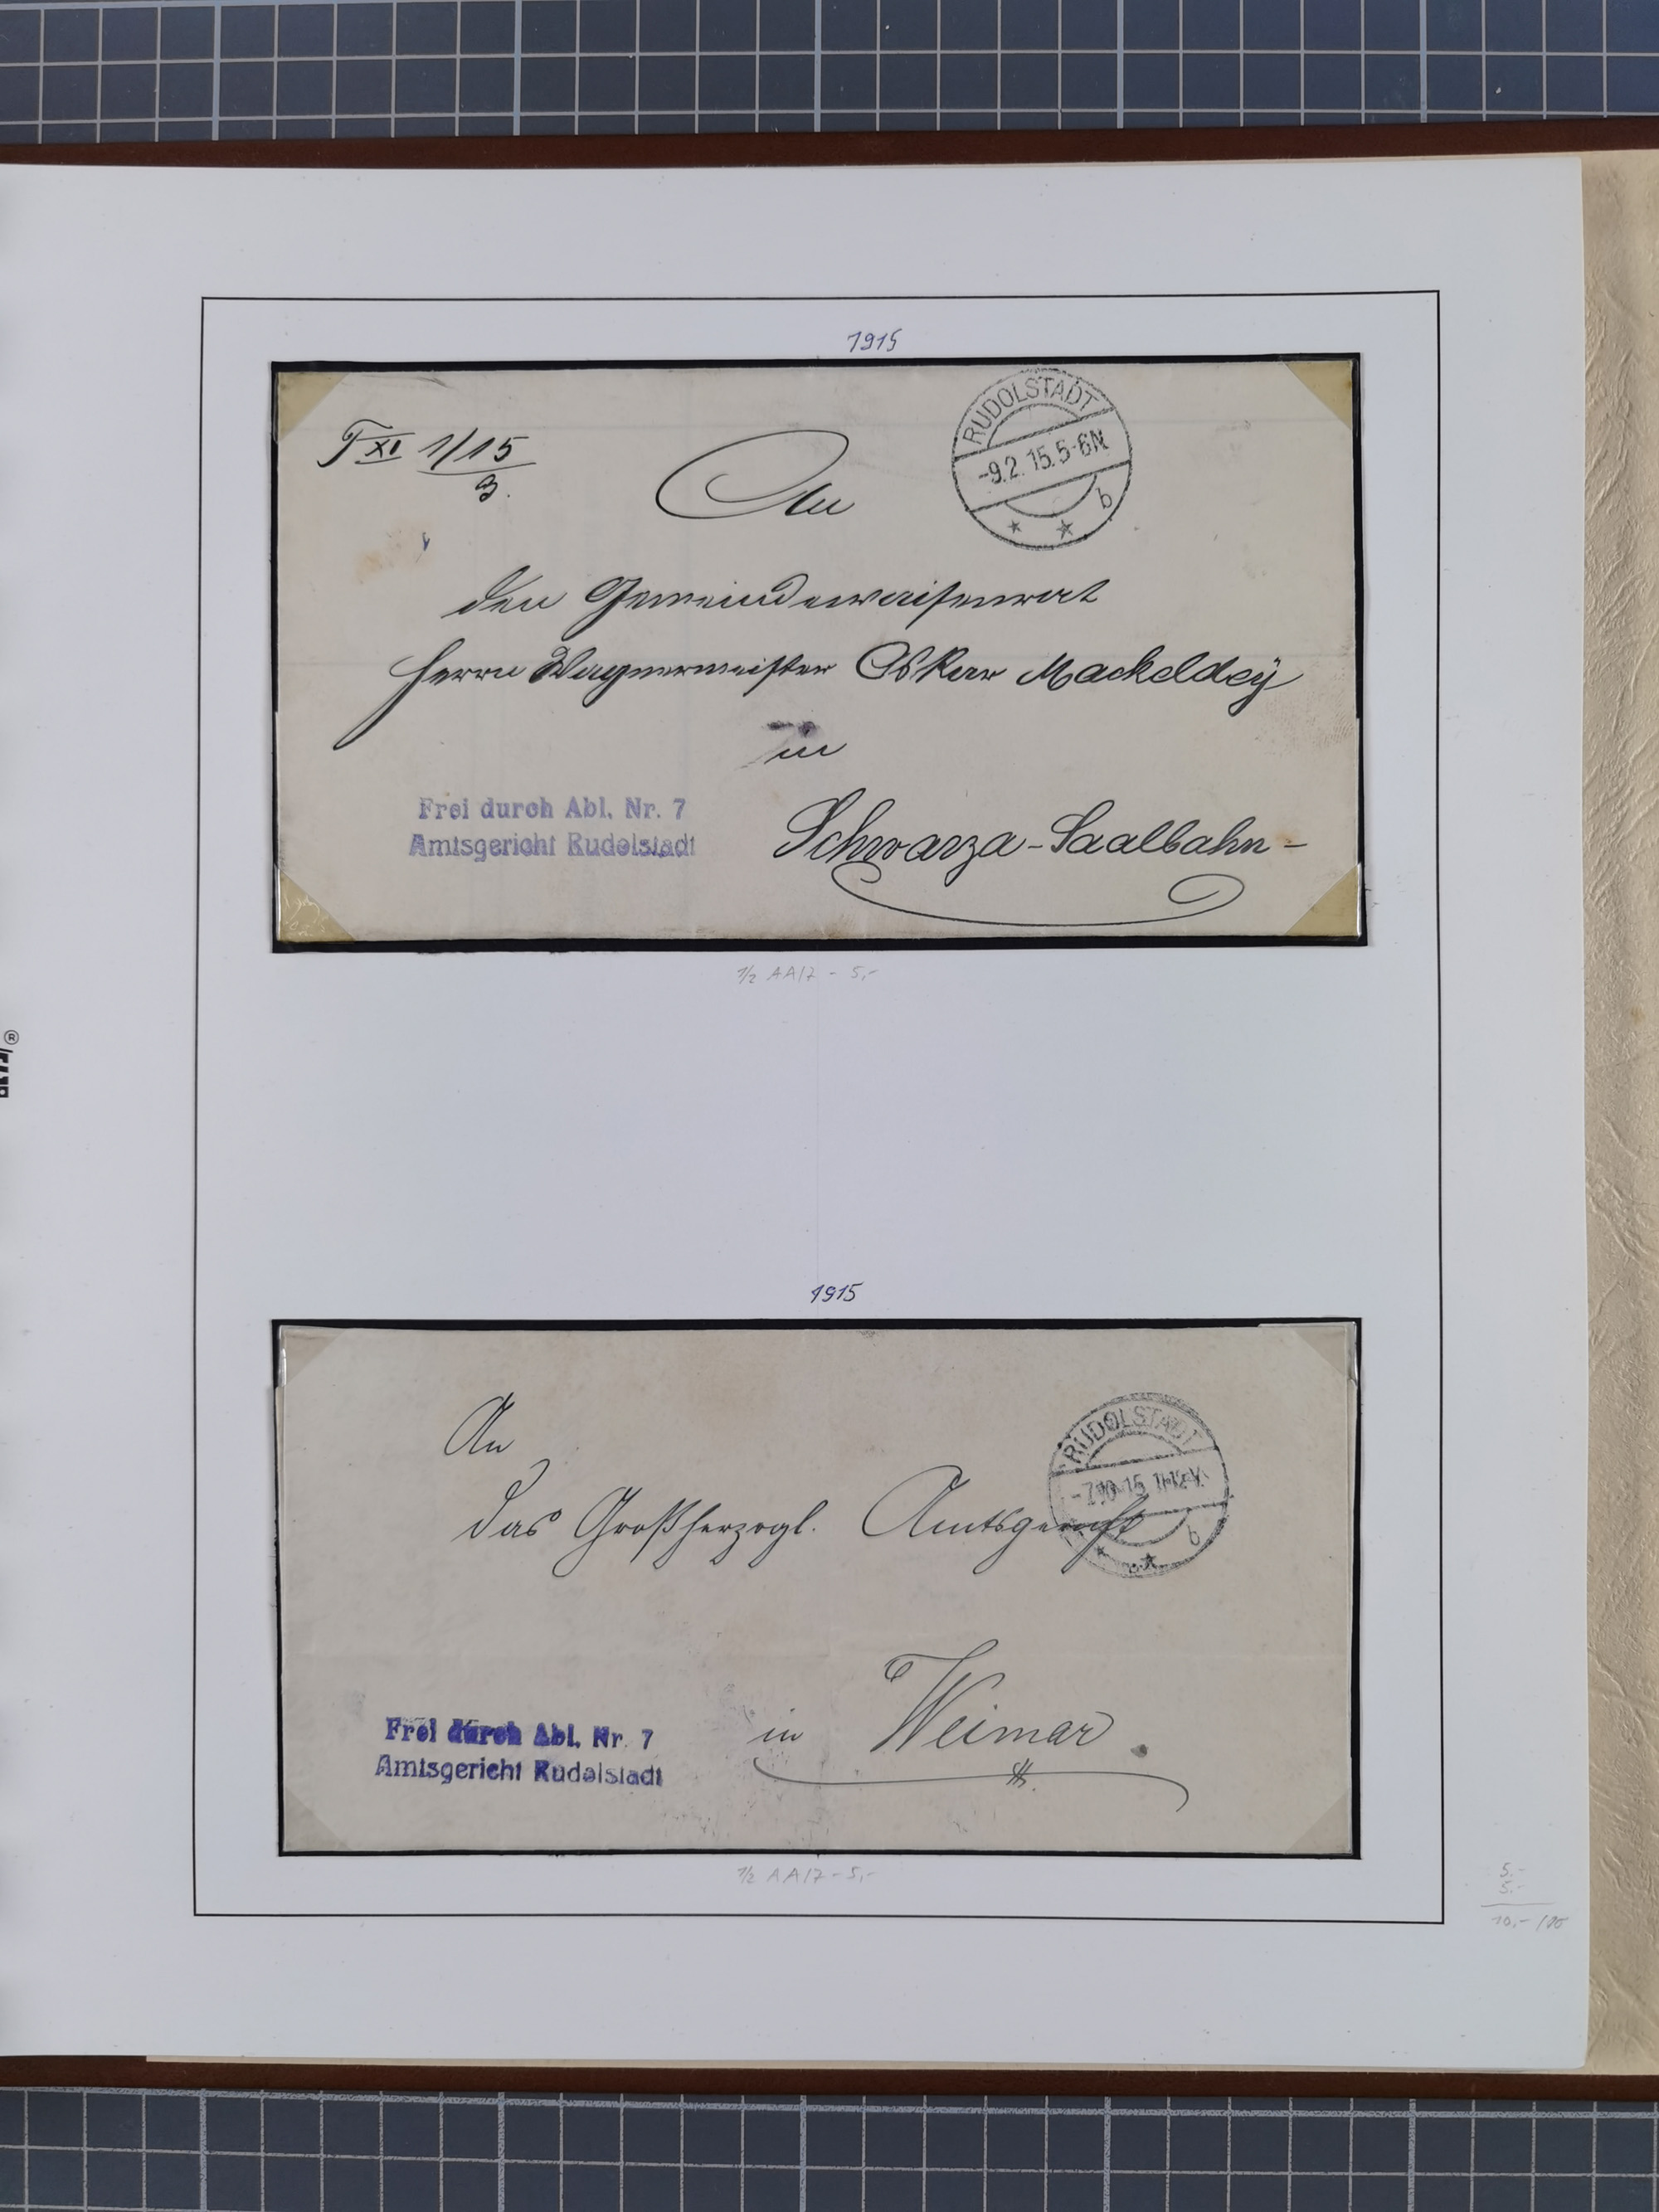 1915
RUDOLSTADT
-9.2.15.5-6N
* * b
T XI 1/15
3.
An
den Gemeindewaisenrat
Herrn Wagnermeister Oskar Mackeldeÿ
in
Schwarza-Saalbahn-
Frei durch Abl. Nr. 7
Amtsgericht Rudolstadt
1/2 AA/7 - 5,-
®
1915
RUDOLSTADT
* * b
An
das Großherzogl. Amtsgericht
in Weimar.
Frei durch Abl. Nr. 7
Amtsgericht Rudolstadt
1/2 AA/7 - 5,-
5.-
5.-
10.-